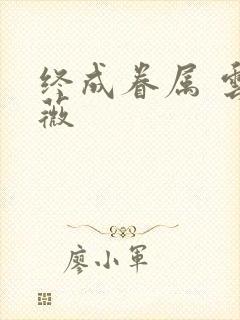 终成眷属 雲
薇
廖小军